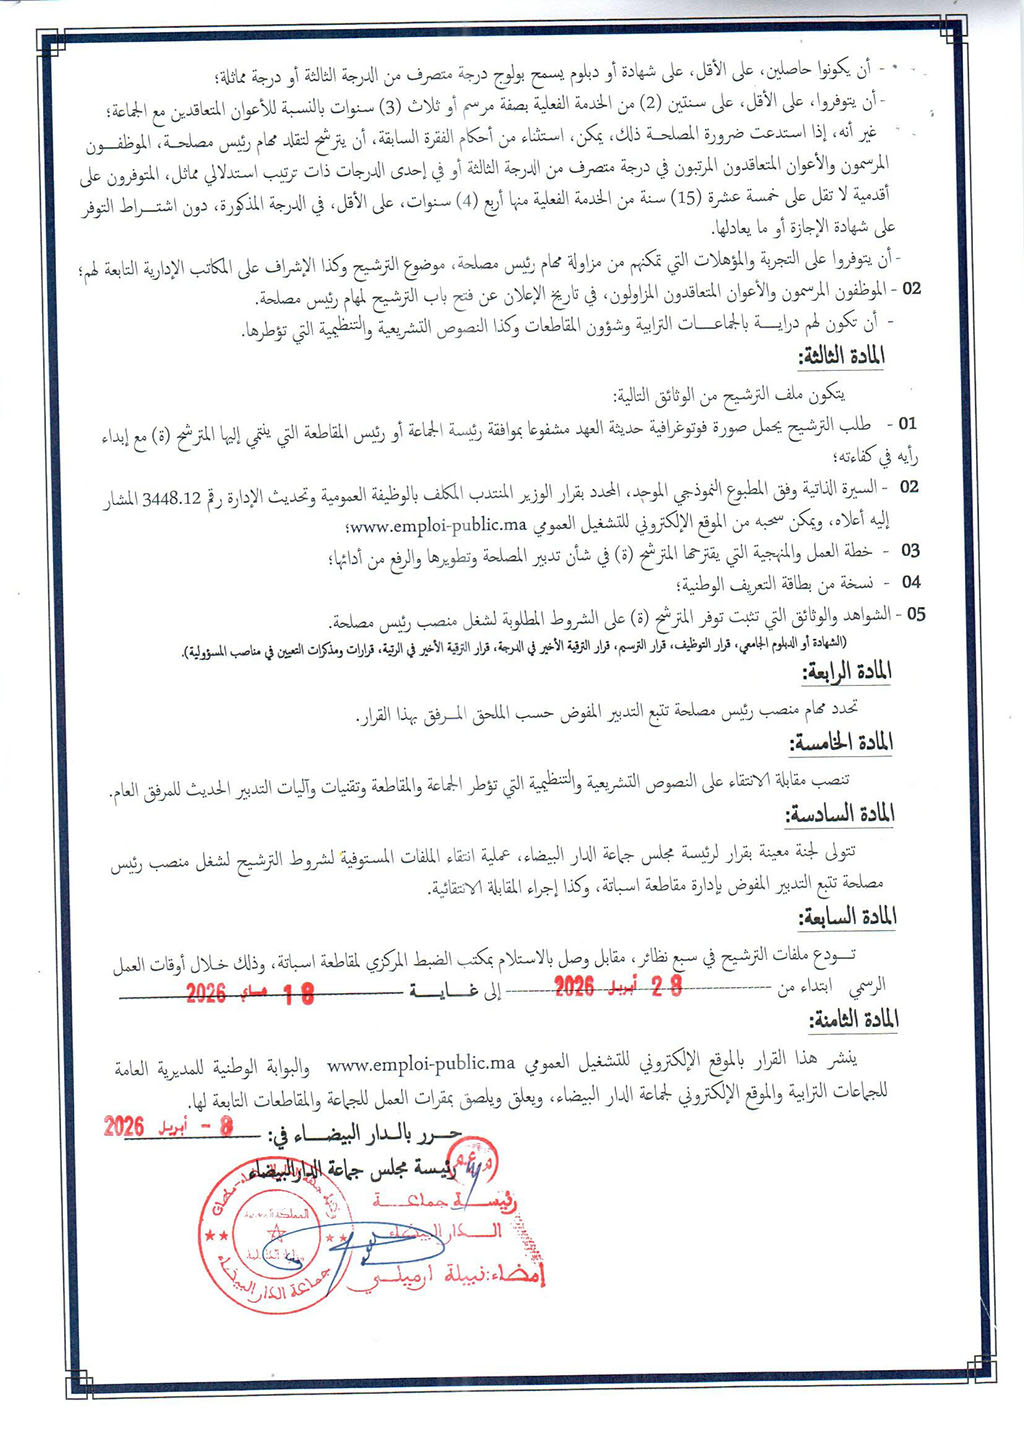 - أن يكونوا حاصلين، على الأقل، على شهادة أو دبلوم يسمح بولوج درجة متصرف من الدرجة الثالثة أو درجة مماثلة؛
- أن يتوفروا، على الأقل، على سنتين (2) من الخدمة الفعلية بصفة مرسم أو ثلاث (3) سنوات بالنسبة للأعوان المتعاقدين مع الجماعة؛
غير أنه، إذا استدعت ضرورة المصلحة ذلك، يمكن، استثناء من أحكام الفقرة السابقة، أن يترشح لتقلد مهام رئيس مصلحة، الموظفون
المرسمون والأعوان المتعاقدون المرتبون في درجة متصرف من الدرجة الثالثة أو في إحدى الدرجات ذات ترتيب استدلالي مماثل، المتوفرون على
أقدمية لا تقل على خمسة عشرة (15) سنة من الخدمة الفعلية منها أربع (4) سنوات، على الأقل، في الدرجة المذكورة، دون اشتراط التوفر
على شهادة الإجازة أو ما يعادلها.
- أن يتوفروا على التجربة والمؤهلات التي تمكنهم من مزاولة مهام رئيس مصلحة، موضوع الترشيح وكذا الإشراف على المكاتب الإدارية التابعة لهم؛
02 - الموظفون المرسمون والأعوان المتعاقدون المزاولون، في تاريخ الإعلان عن فتح باب الترشيح لمهام رئيس مصلحة.
- أن تكون لهم دراية بالجماعات الترابية وشؤون المقاطعات وكذا النصوص التشريعية والتنظيمية التي تؤطرها.
المادة الثالثة:
يتكون ملف الترشيح من الوثائق التالية:
01 - طلب الترشيح يحمل صورة فوتوغرافية حديثة العهد مشفوعا بموافقة رئيسة الجماعة أو رئيس المقاطعة التي ينتمي إليها المترشح (ة) مع إبداء
رأيه في كفاءته؛
02 - السيرة الذاتية وفق المطبوع النموذجي الموحد، المحدد بقرار الوزير المنتدب المكلف بالوظيفة العمومية وتحديث الإدارة رقم 3448.12 المشار
إليه أعلاه، ويمكن سحبه من الموقع الإلكتروني للتشغيل العمومي www.emploi-public.ma؛
03 - خطة العمل والمنهجية التي يقترحها المترشح (ة) في شأن تدبير المصلحة وتطويرها والرفع من أدائها؛
04 - نسخة من بطاقة التعريف الوطنية؛
05 - الشواهد والوثائق التي تثبت توفر المترشح (ة) على الشروط المطلوبة لشغل منصب رئيس مصلحة.
(الشهادة أو الدبلوم الجامعي، قرار التوظيف، قرار الترسيم، قرار الترقية الأخير في الدرجة، قرار الترقية الأخير في الرتبة، قرارات ومذكرات التعيين في مناصب المسؤولية).
المادة الرابعة:
تحدد مهام منصب رئيس مصلحة تتبع التدبير المفوض حسب الملحق المرفق بهذا القرار.
المادة الخامسة:
تنصب مقابلة الانتقاء على النصوص التشريعية والتنظيمية التي تؤطر الجماعة والمقاطعة وتقنيات وآليات التدبير الحديث للمرفق العام.
المادة السادسة:
تتولى لجنة معينة بقرار لرئيسة مجلس جماعة الدار البيضاء، عملية انتقاء الملفات المستوفية لشروط الترشيح لشغل منصب رئيس
مصلحة تتبع التدبير المفوض بإدارة مقاطعة اسباتة، وكذا إجراء المقابلة الانتقائية.
المادة السابعة:
تودع ملفات الترشيح في سبع نظائر، مقابل وصل بالاستلام بمكتب الضبط المركزي لمقاطعة اسباتة، وذلك خلال أوقات العمل
الرسمي ابتداء من 28 أبريل 2026 إلى غاية 18 ماي 2026
المادة الثامنة:
ينشر هذا القرار بالموقع الإلكتروني للتشغيل العمومي www.emploi-public.ma والبوابة الوطنية للمديرية العامة
للجماعات الترابية والموقع الإلكتروني لجماعة الدار البيضاء، ويعلق ويلصق بمقرات العمل للجماعة والمقاطعات التابعة لها.
حرر بالدار البيضاء في: 8 - أبريل 2026
رئيسة مجلس جماعة الدار البيضاء
رئيسة جماعة
الدار البيضاء
إمضاء: نبيلة ارميلي
المملكة المغربية
وزارة الداخلية
جماعة الدار البيضاء